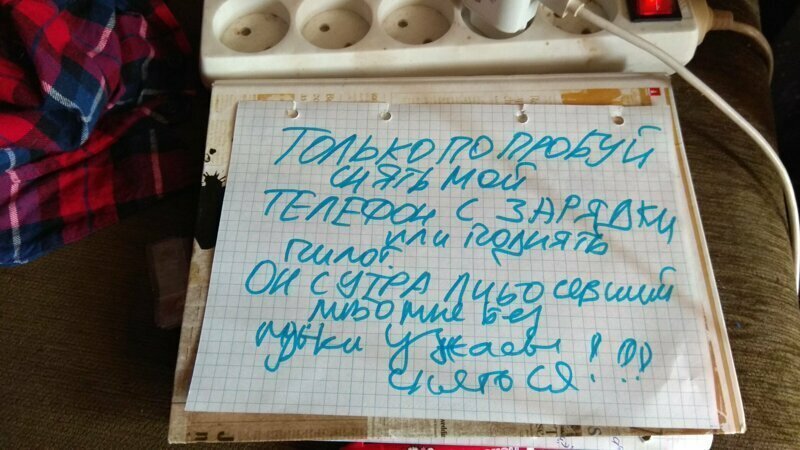 ТОЛЬКО ПОПРОБУЙ
СНЯТЬ МОЙ
ТЕЛЕФОН С ЗАРЯДКИ
или поднять
пилот
ОН С УТРА ЛИБО севший
либо мне без
музыки ужасы
снятся!!!!